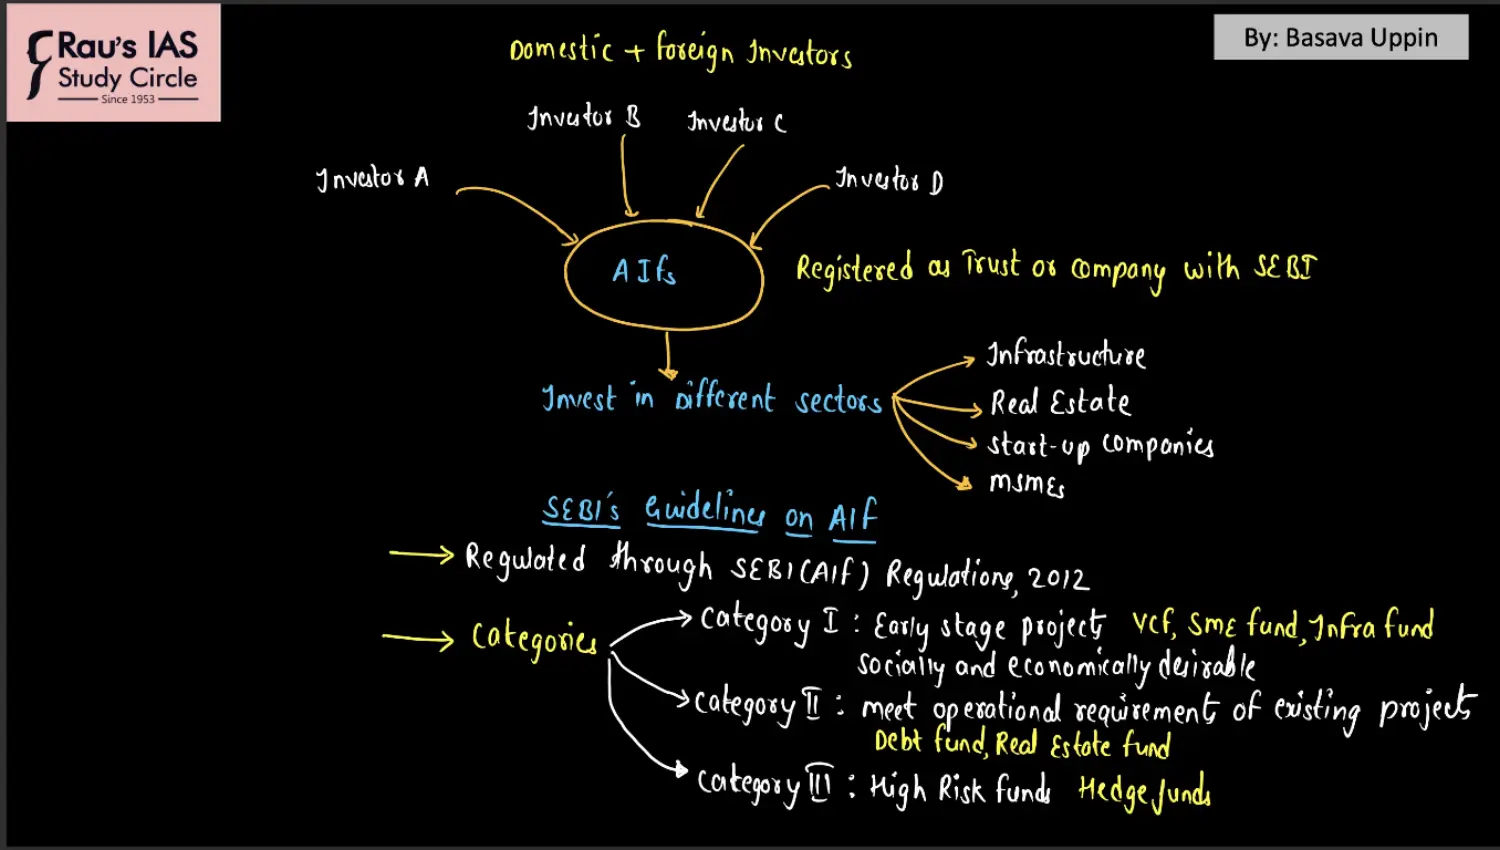 Rau's IAS
Study Circle
Since 1953
By: Basava Uppin
Domestic + Foreign Investors
Investor A
Investor B
Investor C
Investor D
AIFs
Registered as Trust or Company with SEBI
Invest in Different sectors
Infrastructure
Real Estate
Start-up Companies
MSMEs
SEBI's Guidelines on AIF
Regulated through SEBI(AIF) Regulations, 2012
Categories
Category I : Early stage projects VCF, SME fund, Infra fund
socially and economically desirable
Category II : meet operational requirements of existing projects
Debt fund, Real Estate fund
Category III : High Risk Funds Hedge funds